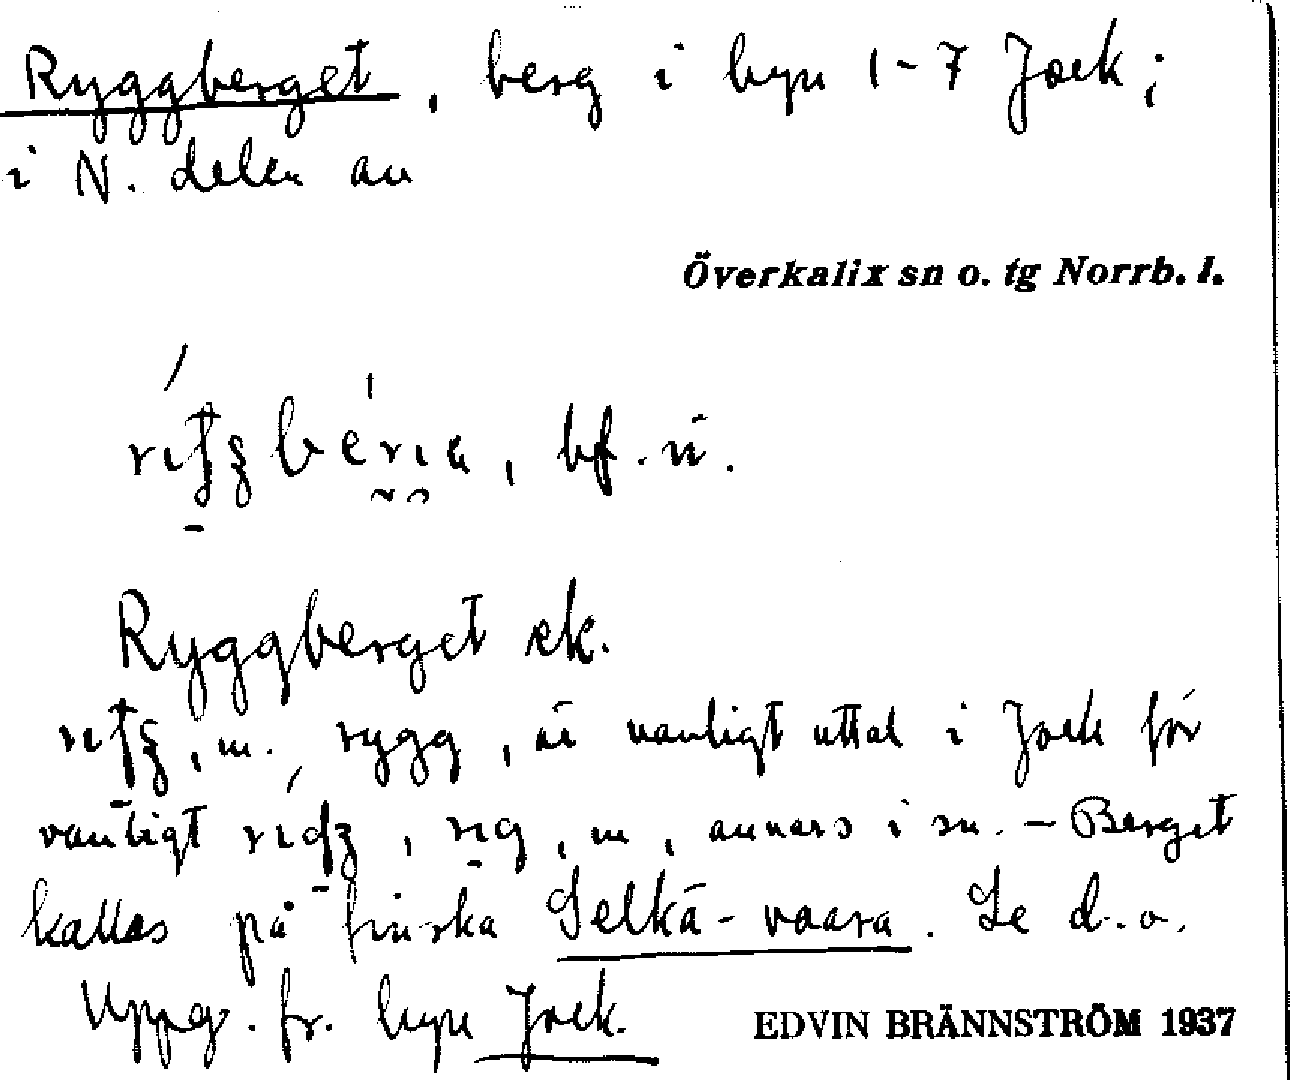 Ryggberget, berg i byn 1-7 Jock;
i N. delen av
Överkalix sn o. tg Norrb. l.
bf. n.
Ryggberget ek.
, m. rygg, är vanligt uttal i Jock för
vanligt , m, annars i sn. - Berget
kallas på finska Selkä-vaara. Se d.o.
Uppg. fr. byn Jock.
EDVIN BRÄNNSTRÖM 1937